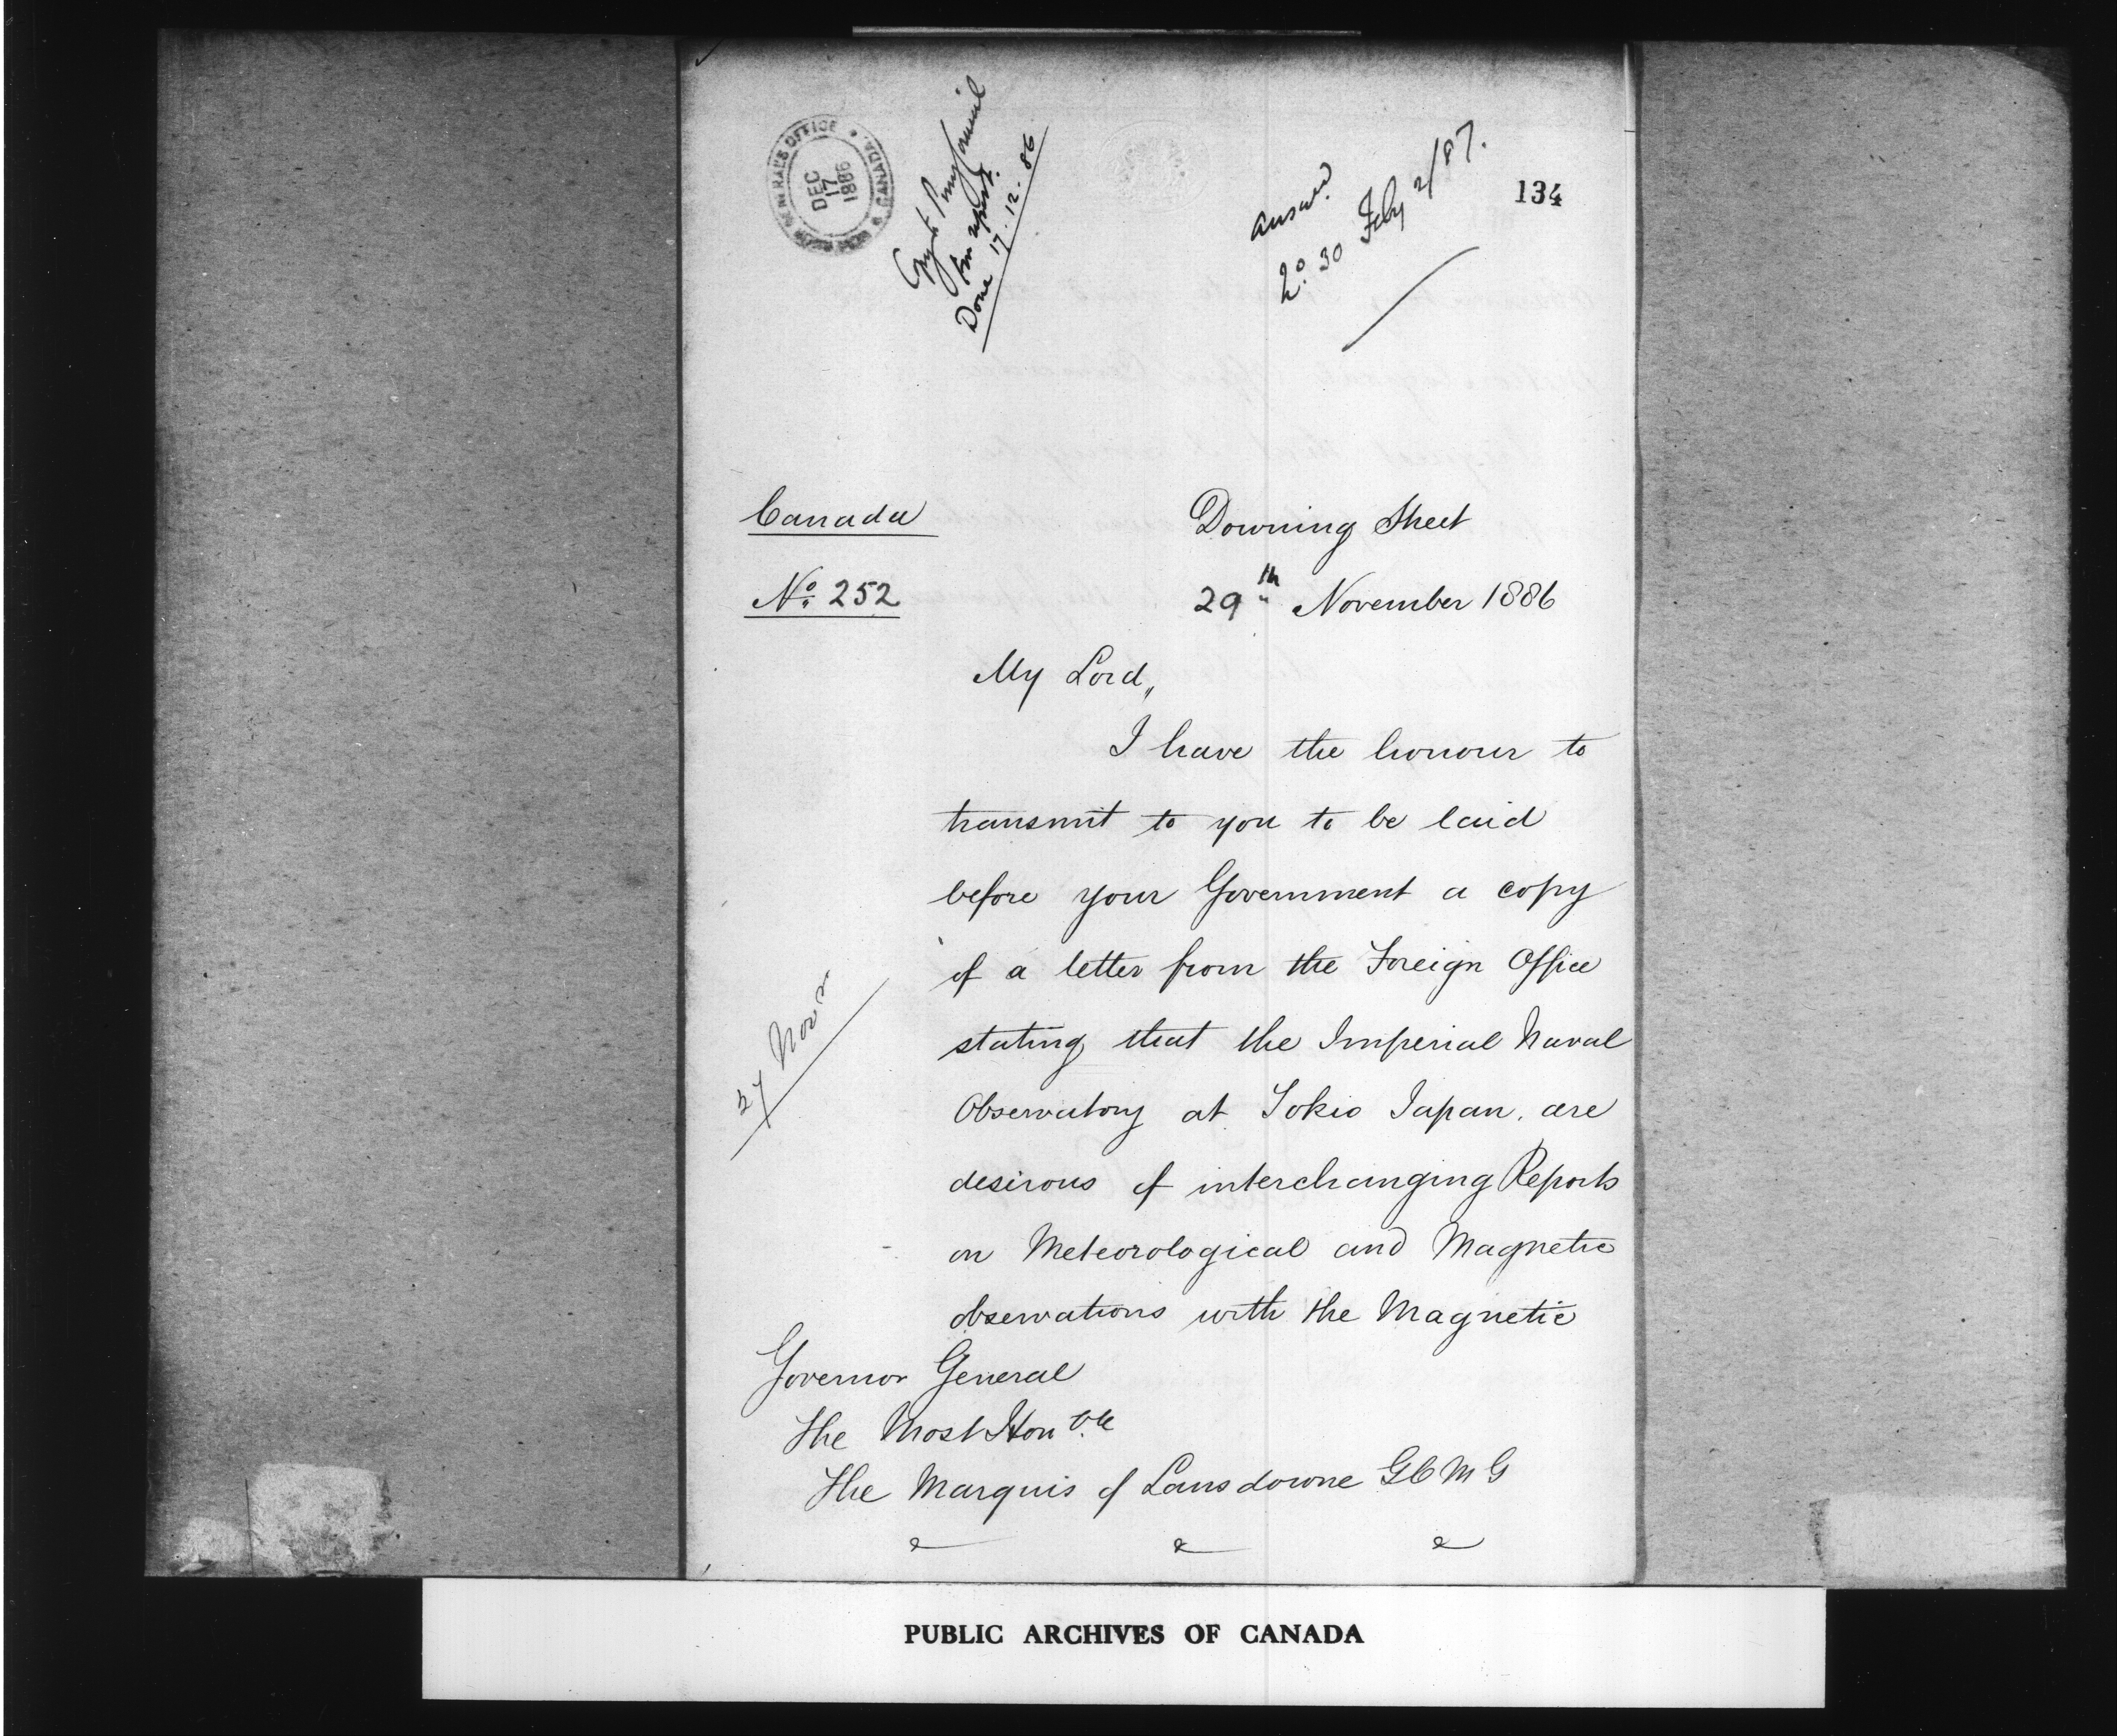 GOVERNOR GENERAL'S OFFICE
CANADA
DEC
17
1886
Copy to Privy Council
for report.
Done 17.12.86
Answd.
No. 30 Feby 2/87.
134
Canada
No. 252
Downing Street
29th November 1886
My Lord,
I have the honour to
transmit to you to be laid
before your Government a copy
of a letter from the Foreign Office
27 Novr
stating that the Imperial Naval
Observatory at Tokio Japan, are
desirous of interchanging Reports
on Meteorological and Magnetic
observations with the Magnetic
Governor General
The Most Honble
The Marquis of Lansdowne GCMG
&c &c &c
PUBLIC ARCHIVES OF CANADA